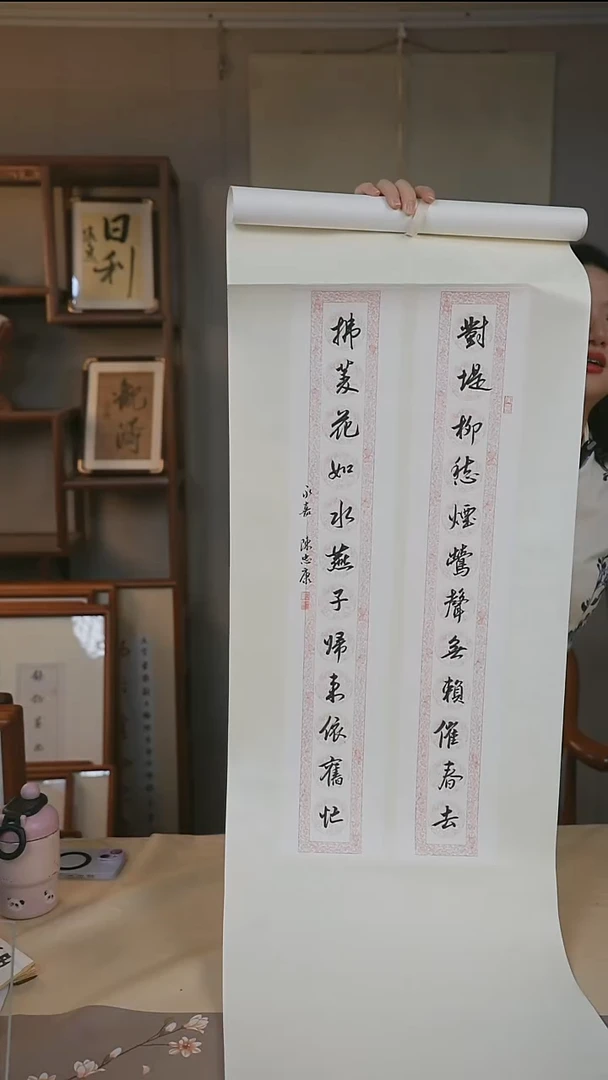 對堤柳愁煙鶯聲無賴催春去
拂菱花如水燕子歸來依舊忙
永嘉 陳忠康
日利